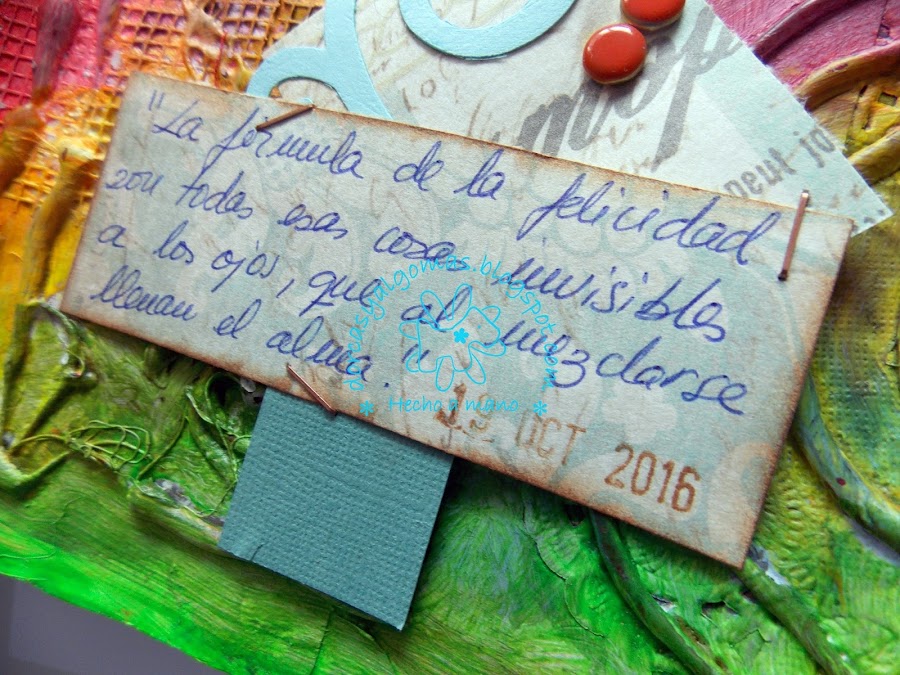 "La fórmula de la felicidad
son todas esas cosas invisibles
a los ojos, que al mezclarse
llenan el alma."
OCT 2016
peut jo
Hecho a mano